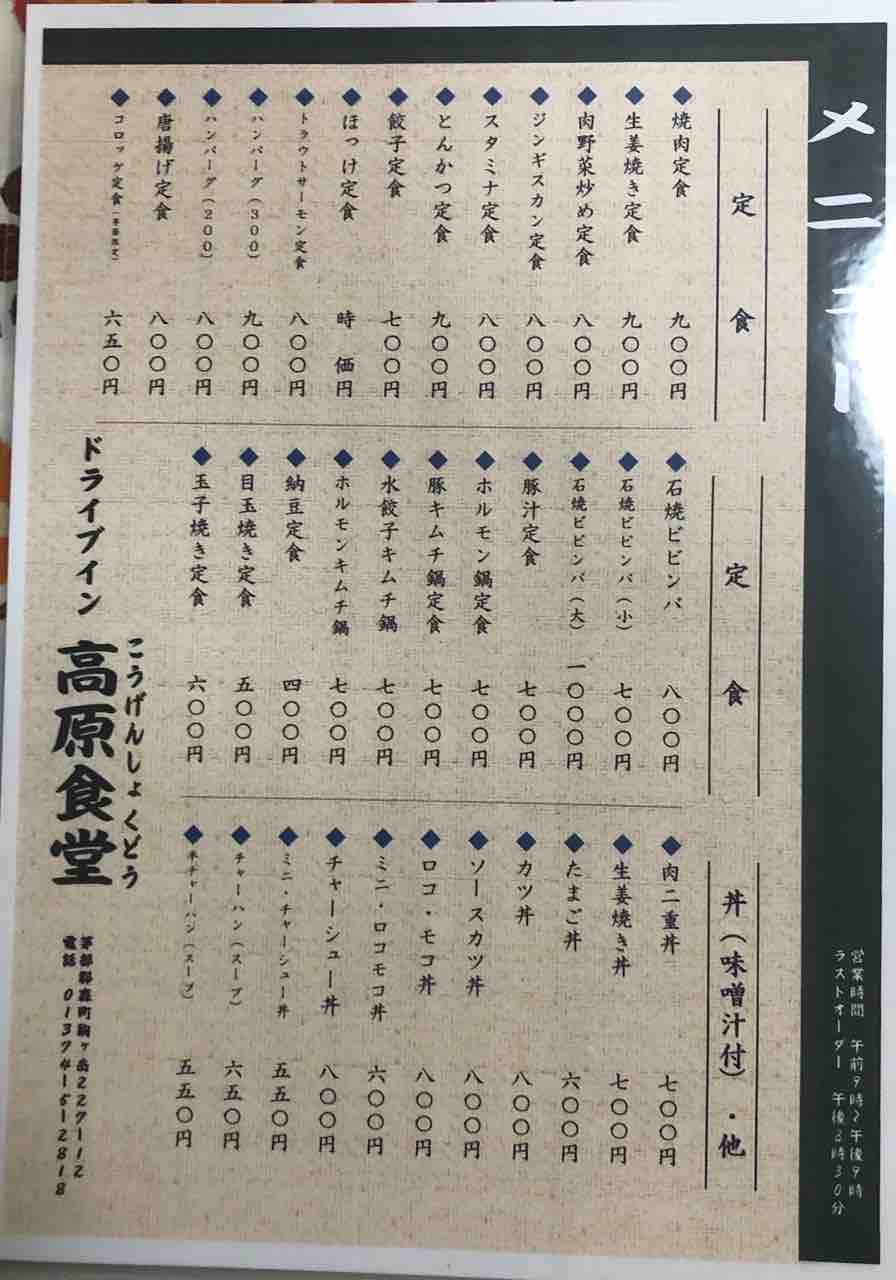 メニュー
営業時間 午前9時~午後9時
ラストオーダー 午後8時30分
定食
焼肉定食 九〇〇円
生姜焼き定食 九〇〇円
肉野菜炒め定食 八〇〇円
ジンギスカン定食 八〇〇円
スタミナ定食 八〇〇円
とんかつ定食 九〇〇円
餃子定食 七〇〇円
ほっけ定食 時価円
トラウトサーモン定食 八〇〇円
ハンバーグ(300) 九〇〇円
ハンバーグ(200) 八〇〇円
唐揚げ定食 八〇〇円
コロッケ定食 六五〇円
定食
石焼ビビンバ 八〇〇円
石焼ビビンバ(小) 七〇〇円
石焼ビビンバ(大) 一〇〇〇円
豚汁定食 七〇〇円
ホルモン鍋定食 七〇〇円
豚キムチ鍋定食 七〇〇円
水餃子キムチ鍋 七〇〇円
ホルモンキムチ鍋 七〇〇円
納豆定食 四〇〇円
目玉焼き定食 五〇〇円
玉子焼き定食 六〇〇円
丼(味噌汁付)・他
肉二重丼 七〇〇円
生姜焼き丼 七〇〇円
たまご丼 六〇〇円
カツ丼 八〇〇円
ソースカツ丼 八〇〇円
ロコ・モコ丼 八〇〇円
ミニ・ロコモコ丼 六〇〇円
チャーシュー丼 八〇〇円
ミニ・チャーシュー丼 五五〇円
チャーハン(スープ) 六五〇円
半チャーハン(スープ) 五五〇円
ドライブイン
こうげんしょくどう
高原食堂
茅部郡森町駒ヶ岳227-112
電話 01374-5-2818